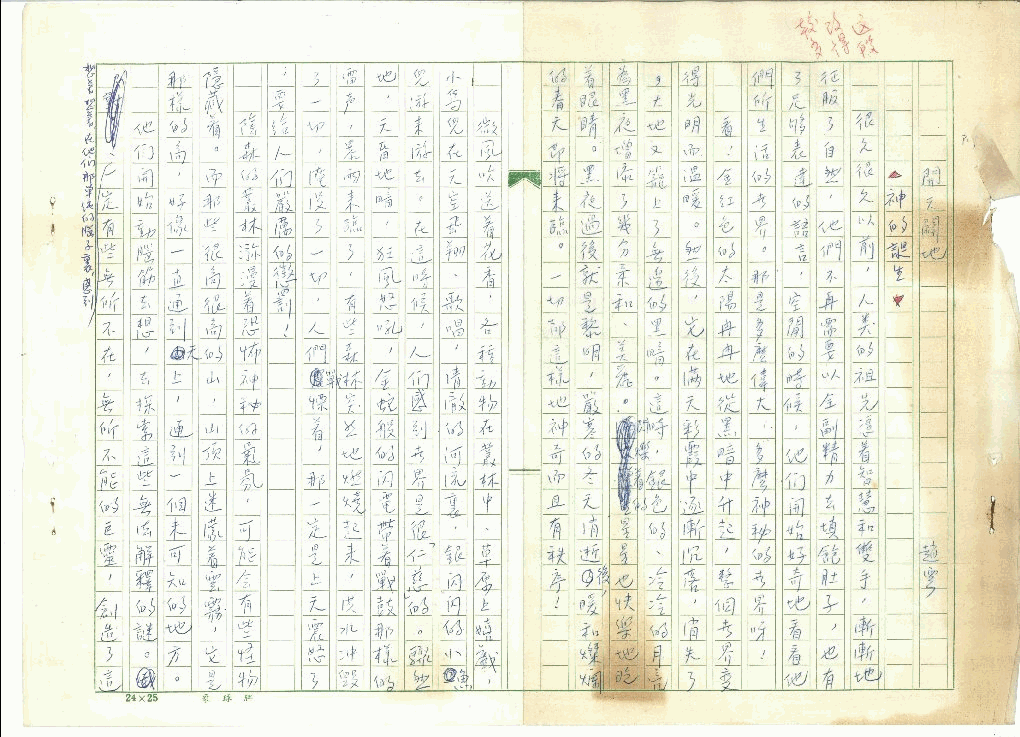 這段
改得
較多
開天闢地
趙雲
神的誕生
很久很久以前,人类的祖先憑着智慧和雙手,漸漸地
征服了自然,他們不再需要以全副精力去填飽肚子,也有
了足够表達的語言,空閒的時候,他們開始好奇地看看他
們所生活的世界。那是多麼偉大、多麼神秘的世界呀!
看!金紅色的太陽冉冉地從黑暗中升起,整個世界变
得光明而溫暖。然後,它在滿天彩霞中逐漸沉落,消失了
。大地又籠上了無邊的黑暗。這時,銀色的、冷冷的月亮
為黑夜增添了幾分柔和、美麗。閃爍着的星星也快樂地眨
着眼睛。黑夜過後就是黎明,嚴寒的冬天消逝後,暖和燦爛
的春天即將來臨。一切都這樣地神奇而且有秩序!
微風吹送着花香,各種動物在叢林中、草原上嬉戲,
小鳥兒在天空飛翔、歌唱,清澈的河流裏,銀閃閃的小魚
兒游來游去。在這時候,人們感到世界是很「仁慈」的。驟然
地,天昏地暗,狂風怒吼,金蛇般的閃電帶着戰鼓那樣的
雷声,暴雨來臨了,有些森林突然地燃燒起來,洪水冲毀
了一切,淹没了一切,人們戰慄着,那一定是上天震怒了
,要給人們嚴厲的懲罰!
陰森的叢林瀰漫着恐怖神秘的氣氛,可能会有些怪物
隱藏着。而那些很高很高的山,山頂上迷濛着雲霧,又是
那樣的高,好像一直通到天上,通到一個未可知的地方。
他們開始動腦筋去想,去探索這些無法解釋的謎。
想着想着,在他們那單純的腦子裏,感到
一定有些無所不在,無所不能的巨靈,創造了這
24×25